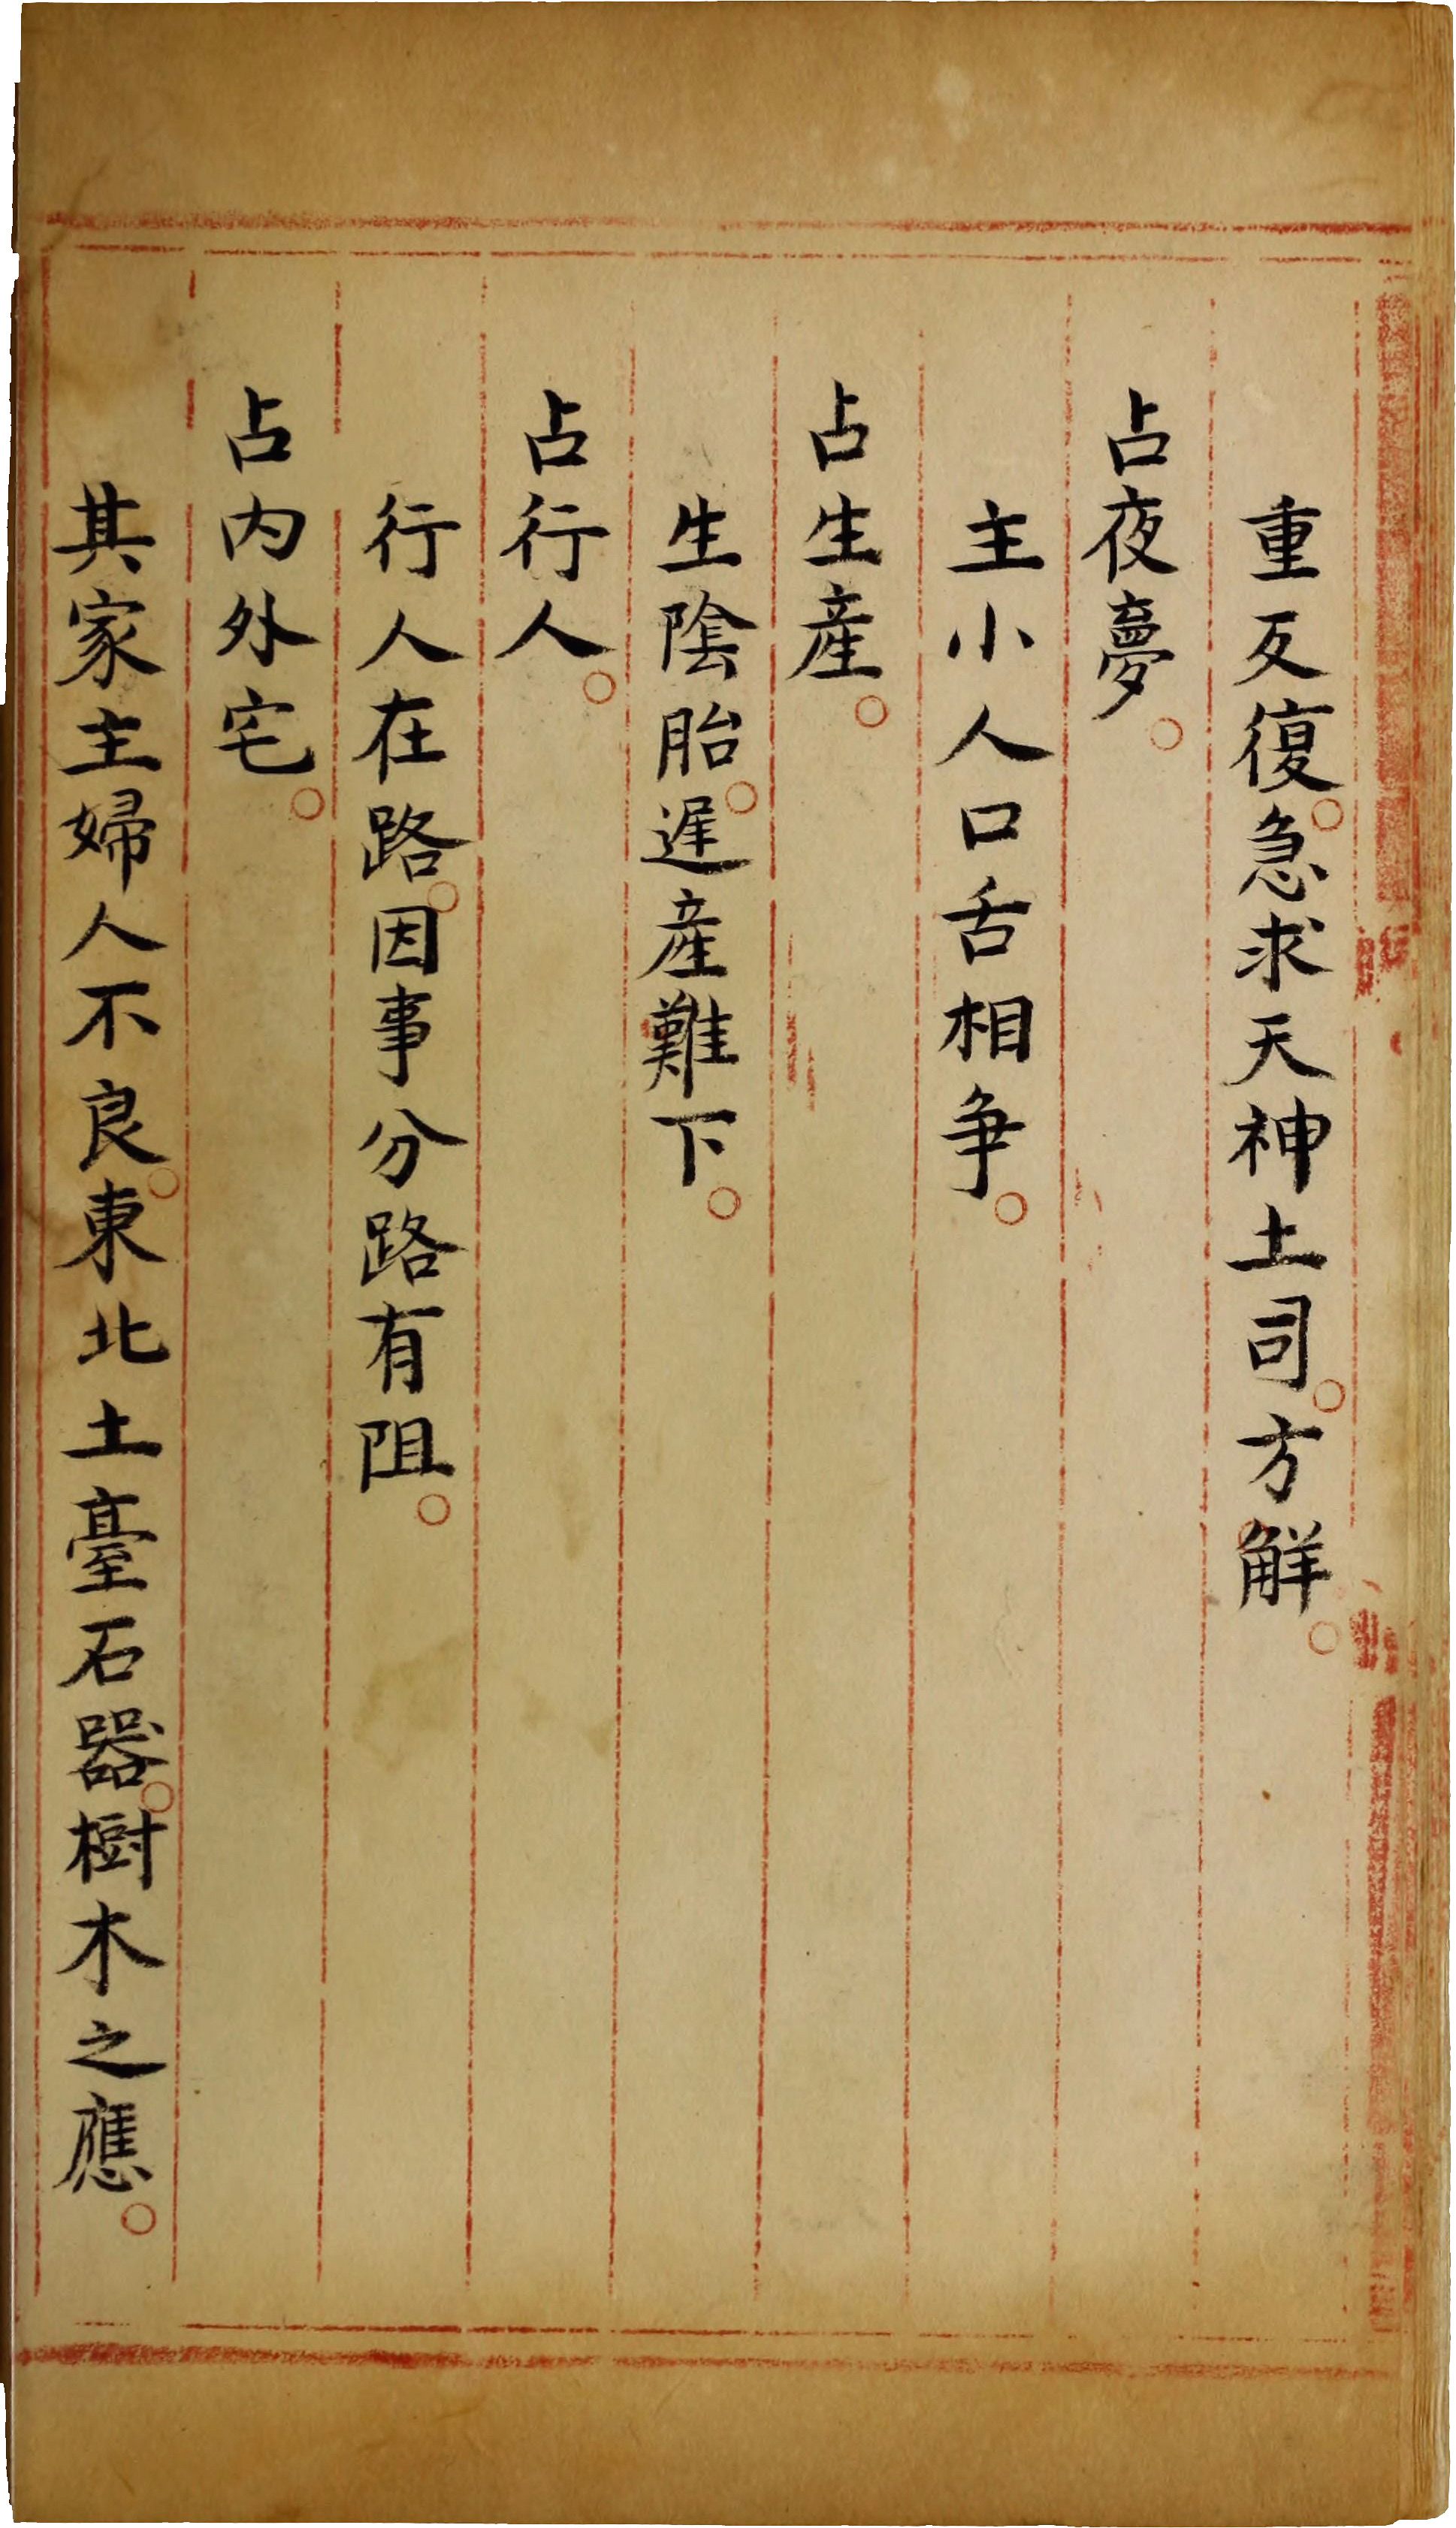 重反復。急求天神土司。方觧。
占夜夢。
主小人口舌相争。
占生産。
生陰胎。遅産難下。
占行人。
行人在路。因事分路有阻。
占内外宅。
其家主婦人不良。東北土臺石器。樹木之應。